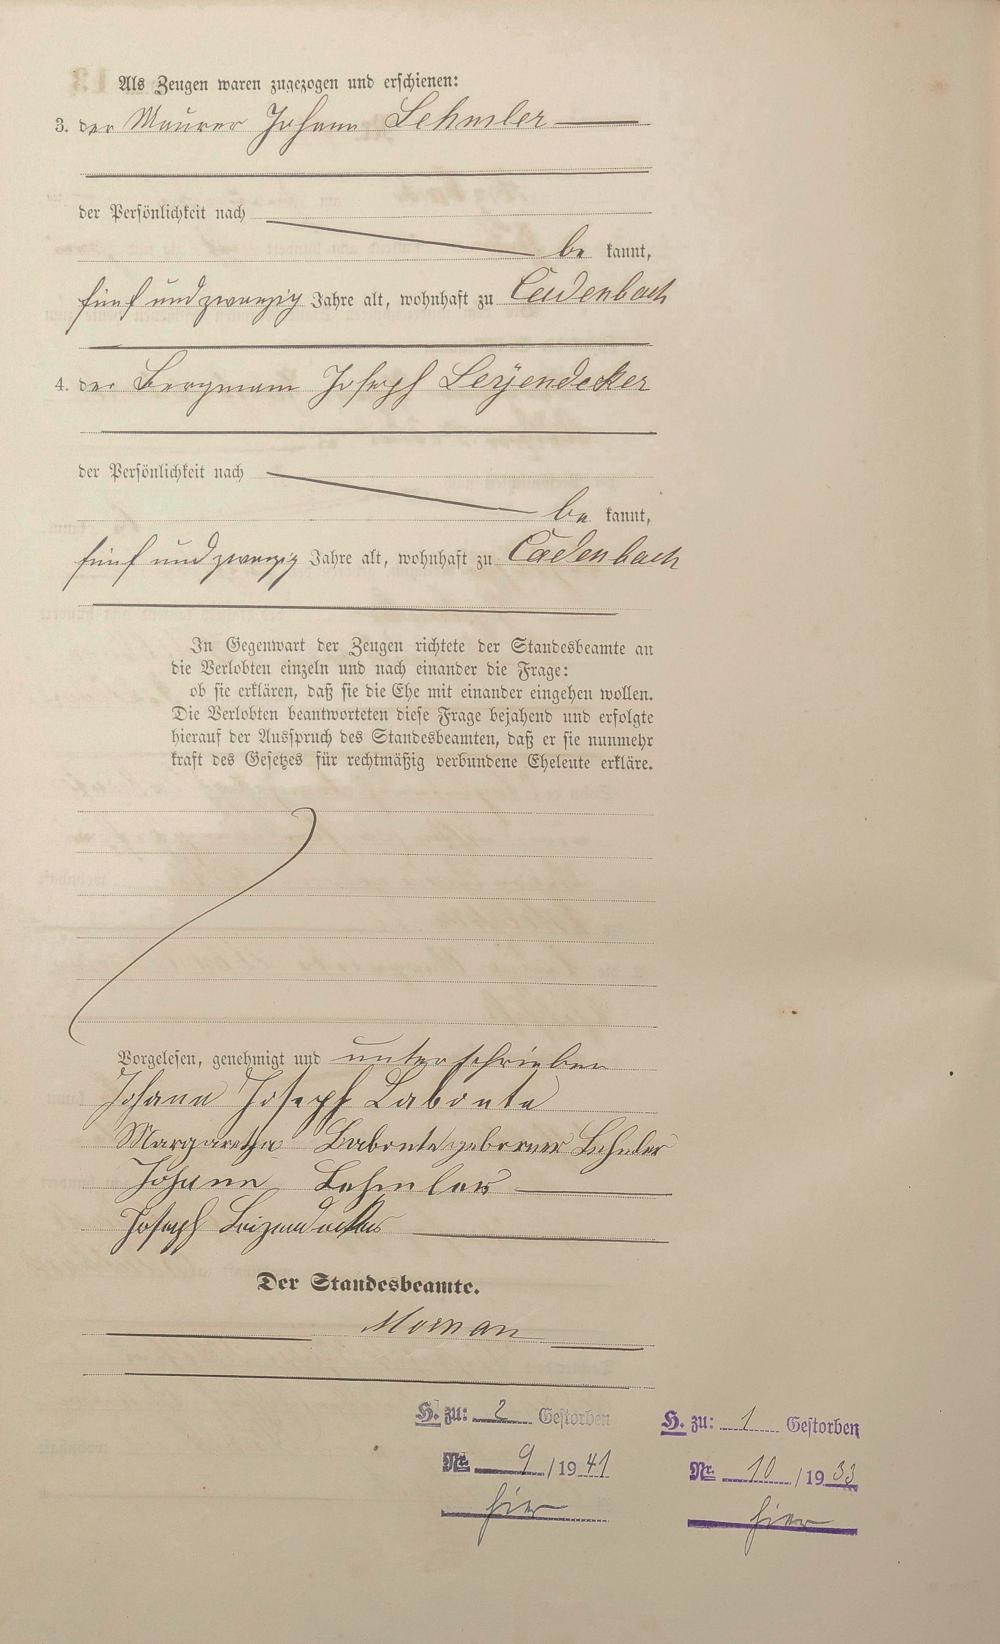 Als Zeugen waren zugezogen und erschienen:
3. der Maurer Johann Lehmler
der Persönlichkeit nach
be kannt,
fünf und zwanzig Jahre alt, wohnhaft zu Cadenbach
4. der Bergmann Joseph Leÿendecker
der Persönlichkeit nach
be kannt,
fünf und zwanzig Jahre alt, wohnhaft zu Cadenbach
In Gegenwart der Zeugen richtete der Standesbeamte an
die Verlobten einzeln und nach einander die Frage:
ob sie erklären, daß sie die Ehe mit einander eingehen wollen.
Die Verlobten beantworteten diese Frage bejahend und erfolgte
hierauf der Ausspruch des Standesbeamten, daß er sie nunmehr
kraft des Gesetzes für rechtmäßig verbundene Eheleute erkläre.
Vorgelesen, genehmigt und unterschrieben
Johann Joseph Labonte
Margaretha Labonte geborner Lehmler
Johann Lehmler
Joseph Leizendecker
Der Standesbeamte.
H. zu: 2 Gestorben H. zu: 1 Gestorben
Nr. 9/1941 Nr. 10/1933
hier hier